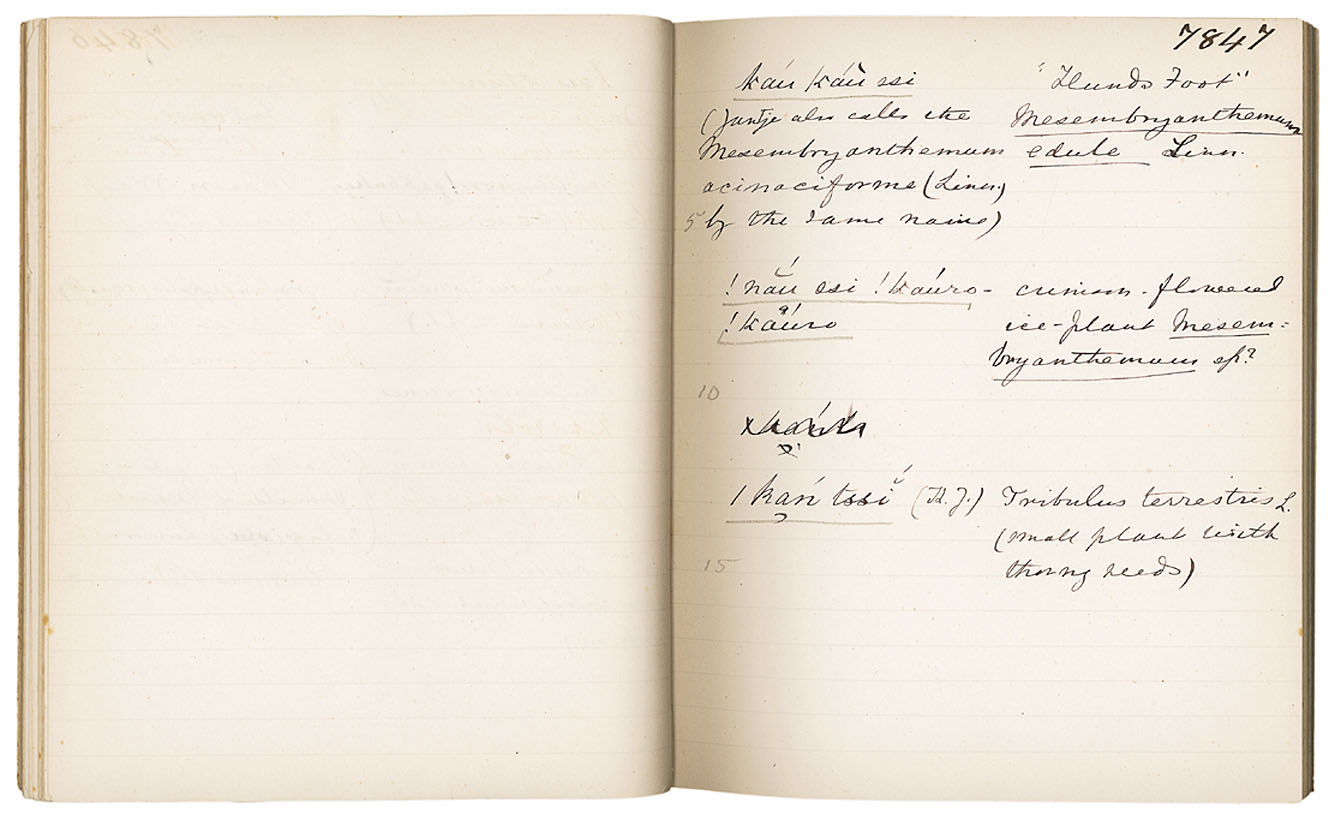 7847
káu |káu ssi "Hunds Foot"
(Jantje also calls the Mesembryanthemum
Mesembryanthemum edule Linn.
acinaciforme (Linn.)
5 by the same name)
!nắu ssi !káuro- crimson-flowered
!káuro ice-plant Mesem=
bryanthemum sp?
10
|kań tssĭ (H.J.) Tribulus terrestris L.
(small plant with
15 thorny seeds)